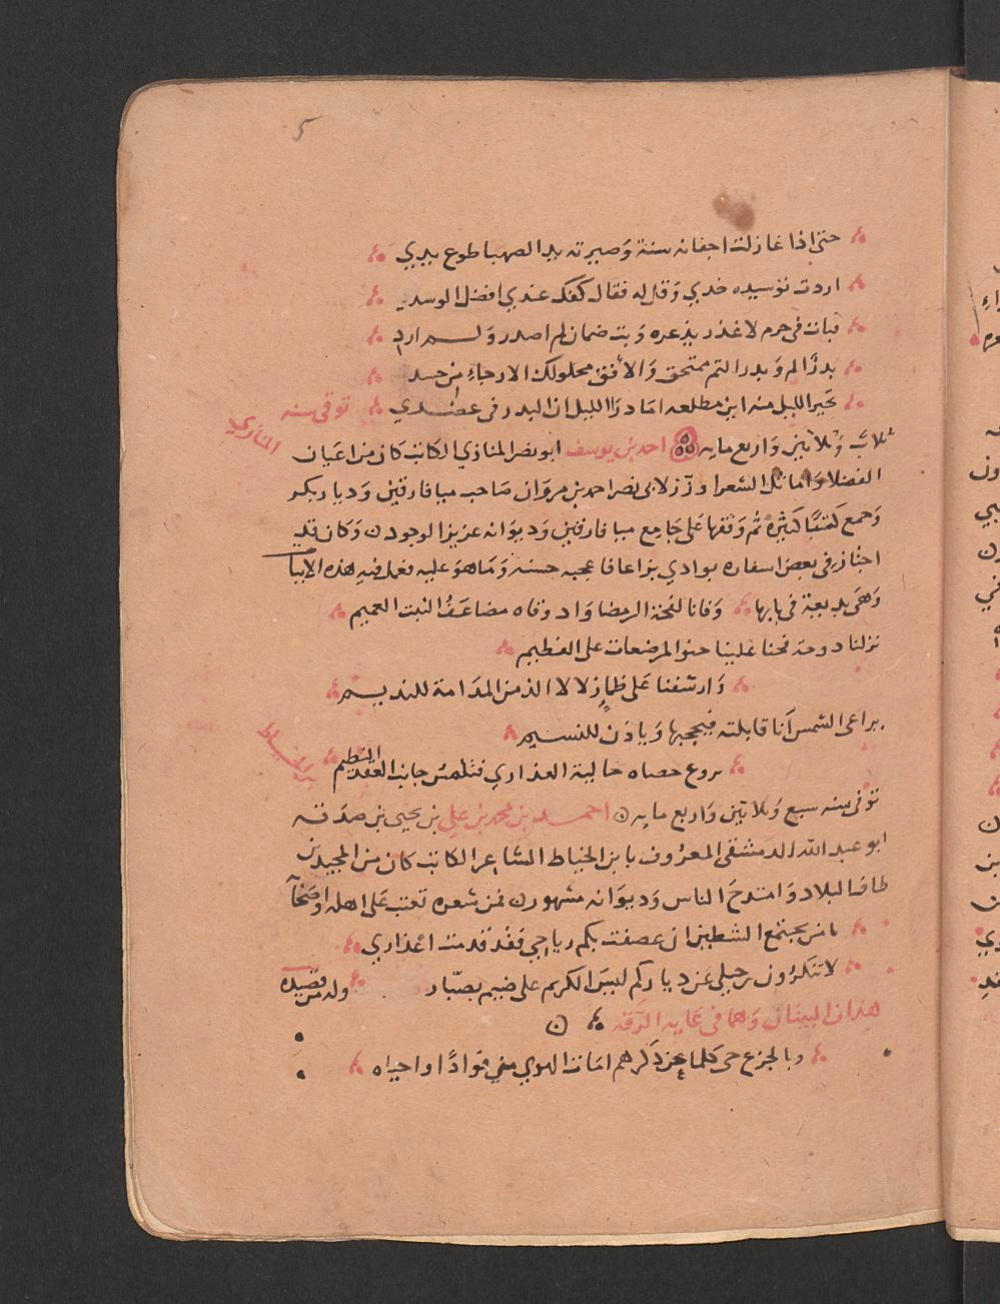 5
حتى اذا غازلت اجفانه سنة وَصيرته يد الصهبا طوع يدي
اردت توسيده خدي وَقل له فقال كفك عندي افضل الوسد
فبات في حرم لا غدر يذعره وَبت ضمان لم اصدر وَلـــم ارد
بدرٌ الم وَبدر التم ممتحق وَالأفق محلولك الارجاء من حسد
تحير الليل منه اين مطلعه اما درا الليل ان البدر في عضدي توفى سنه
المنازي
ثلاث وَثلاثين وَاربع مايه احمد بن يوسف ابو نصر المنازي الكاتب كان من اعيان
الفضلا وَاماثل الشعرا وزر لابي نصر احمد بن مروَان صَاحب ميافارقين وَديار بكر
وَجمع كتبًا كثيرَة ثم وَقفها عَلى جَامع ميافارقين وَديوَانه عزيز الوجود ن وَكان قد
اجتاز في بعض اسفاره بوادي بزاعا فاعجبه حسنه وَمَا هوَ عليه فعمل فيه هذه الابيا
وَهى بديعة في بابها وَقانا لفحة الرمضا وَاد وقاه مضاعَفُ النبت العميم
نزلنا دوحه فحنا علينا حنو المرضعات على الفطيم
وَارشفنا عَلى ظمإٍ زلالا الذ من المدَامة للنديـــم
يراعى الشمس اَنا قابلته فيحجبها وَياذن للنسيم
يروع حصاه حالية العذاري فتلمس جانب العقد النظيم
بن الخياط
توفى سنه سبع وَثلاثين وَاربع مايه ن احمـــد بن محمد بن علي بن يحيى بن صدَقه
ابو عبد الله الدمشقى المعرُوف بابن الخياط الشاعر الكاتب كان من المجيدين
طاف البلاد وَامتدحَ الناس وَديوَانه مشهور ن فمن شعره تعتب عَلى اهله
يا من بجتمع الشطين ان عصفت بكم رياحي فقد قدمت اعذاري
لا تنكرُون رحيلي عن دياركم ليسَ الكريم على ضيم بصبّار وله من قصيده
هذان البيتان وَهما في غايه الرّقه ن
وبالجزع حي كلما عن ذكرهم امَات الهوي مني فوَادًا وَاحياه